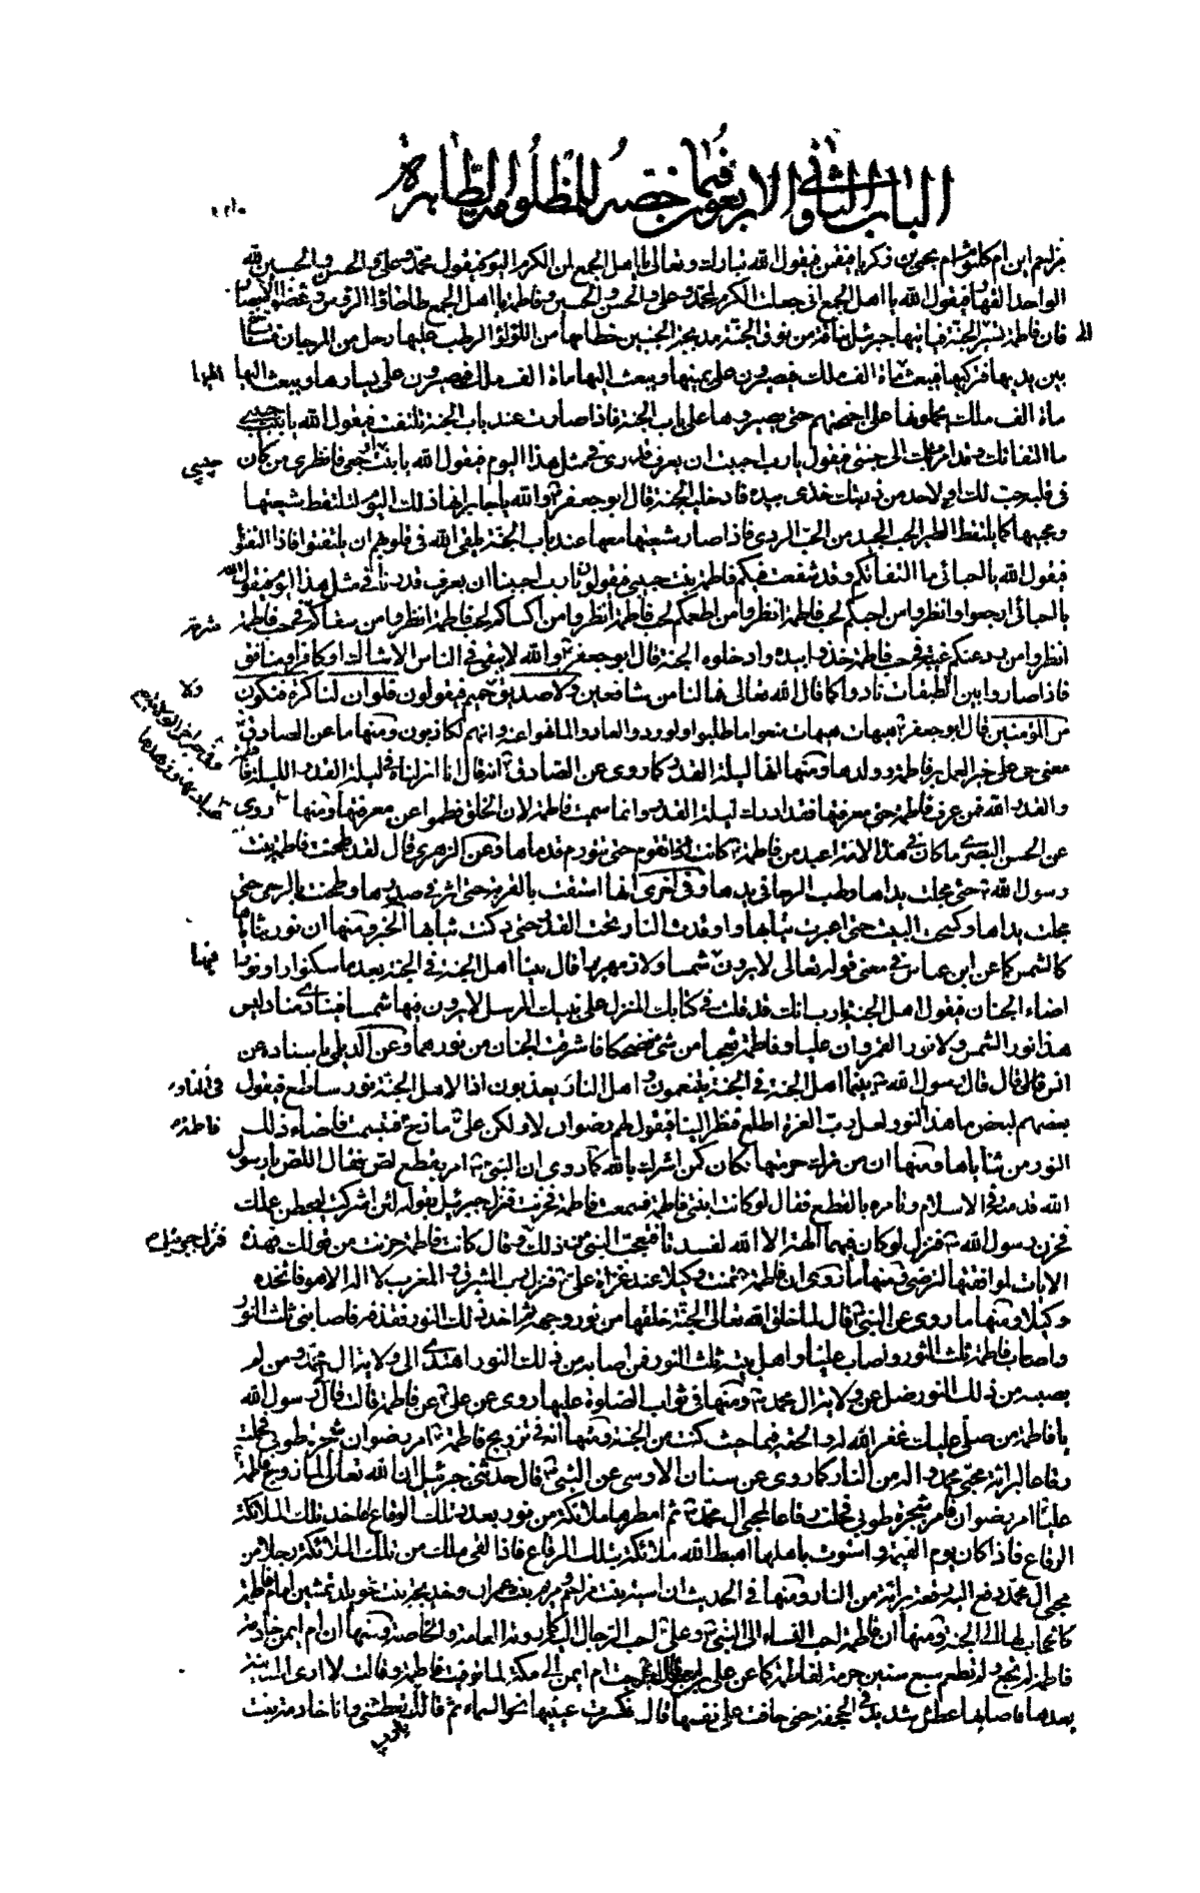 الباب الثانى والاربعون فيما خصّ المظلومة الطاهرة
مزاحم اين ام كلثوم ام يحيى بن زكريا فيقمن فيقول الله تبارك وتعالى يا اهل الجمع لمن الكرم اليوم فيقول محمد وعلى والحسن والحسين لله
الواحد القهار فيقول الله يا اهل الجمع انى جعلت الكرم لمحمد وعلى والحسن والحسين وفاطمة يا اهل الجمع طاطئوا الرؤس وغضوا الابصار
فان فاطمة تسير الى الجنة فياتيها جبرئيل بناقة من نوق الجنة مدبجة الجنبين خطامها من اللؤلؤ الرطب عليها رحل من المرجان فتناخ
بين يديها فتركبها فيبعث مائة الف ملك فيصيرون على يمينها ويبعث اليها مائة الف ملك فيصيرون على يسارها ويبعث اليها
مائة الف ملك يحملونها على اجنحتهم حتى يصيرونها على باب الجنة فاذا صارت عند باب الجنة تلتفت فيقول الله يا بنت حبيبى
ما التفاتك وقد امرت بك الى جنتى فيقول يا رب احببت ان يعرف قدرى فى مثل هذا اليوم فيقول الله يا بنت حبيبى ارجعى فانظرى من كان
فى قلبه حب لك او لاحد من ذريتك خذى بيده فادخليه الجنة قال ابو جعفر والله يا جابر انها ذلك اليوم لتلتقط شيعتها
ومحبيها كما يلتقط الطير الحب الجيد من الحب الردى فاذا صار شيعتها معها عند باب الجنة يلقى الله فى قلوبهم ان يلتفتوا فاذا التفتوا
فيقول الله يا احبائى ما التفاتكم وقد شفعت فيكم فاطمة بنت حبيبى فيقولون يا رب احببنا ان يعرف قدرنا فى مثل هذا اليوم فيقول الله
يا احبائى ارجعوا وانظروا من احبكم لحب فاطمة انظروا من اطعمكم لحب فاطمة انظروا من كساكم لحب فاطمة انظروا من سقاكم شربة فى حب فاطمة
انظروا من رد عنكم غيبة فى حب فاطمة خذوا بيده وادخلوه الجنة قال ابو جعفر والله لا يبقى فى الناس الا شاك او كافر او منافق
فاذا صاروا بين الطبقات نادوا كما قال الله تعالى فما لنا من شافعين ولا صديق حميم فيقولون فلو ان لنا كرة فنكون
من المؤمنين قال ابو جعفر هيهات هيهات منعوا ما طلبوا ولو ردوا لعادوا لما نهوا عنه وانهم لكاذبون ومنها ما عن الصادق
معنى حى على خير العمل بر فاطمة وولدها ومنها انها ليلة القدر كما روى عن الصادق انه قال انا انزلناه فى ليلة القدر الليلة فاطمة
والقدر الله فمن عرف فاطمة حق معرفتها فقد ادرك ليلة القدر وانما سميت فاطمة لان الخلق فطموا عن معرفتها ومنها روى
عن الحسن البصرى ما كان فى هذا الامة اعبد من فاطمة كانت تقوم حتى تورم قدماها وعن الزهرى قال لقد طحنت فاطمة بنت
رسول الله حتى مجلت يداها وطب الرحا فى يدها وفى اخرى انها استقت بالقربة حتى اثر فى صدرها وطحنت بالرحى حتى
مجلت يداها وكسحت البيت حتى اغبرت ثيابها واوقدت النار تحت القدر حتى دكنت ثيابها الخبر ومنها ان نور ثناياها
كالشمس كما عن ابن عباس فى معنى قوله تعالى لا يرون فيها شمسا ولا زمهريرا قال بينا اهل الجنة فى الجنة بعد ما سكنوا راوا نورا
اضاء الجنان فيقول اهل الجنة يا رب انك قد قلت فى كتابك المنزل على نبيك المرسل لا يرون فيها شمسا فينادى مناد ليس
هذا نور الشمس ولا نور القمر وان عليا وفاطمة تعجبا من شئ فضحكا فاشرقت الجنان من نورهما وعن الديلمى باسناده عن
انس قال قال رسول الله بينما اهل الجنة فى الجنة يتنعمون واهل النار فى النار يعذبون اذا لاهل الجنة نور ساطع فيقول
بعضهم لبعض ما هذا النور لعل رب العزة اطلع فنظر الينا فيقول لهم رضوان لا ولكن على مازح فاطمة فتبسمت فاضاء ذلك
النور من ثناياها ومنها ان من هتك حرمتها كان كمن اشرك بالله كما روى ان النبى امر بقطع لص فقال اللص يا رسول
الله قدمته فى الاسلام وتامره بالقطع فقال لو كانت ابنتى فاطمة فسمعت فاطمة فحزنت فنزل جبرئيل بقوله لئن اشركت ليحبطن عملك
فحزن رسول الله فنزل لو كان فيهما الهة الا الله لفسدتا فتعجب النبى من ذلك فنزل جبرئيل وقال كانت فاطمة حزنت من قولك فهذه
الايات لموافقتها لترضى ومنها ما روى ان فاطمة تمنت وكيلا عند غزاة على فنزل رب المشرق والمغرب لا اله الا هو فاتخذه
وكيلا ومنها ما روى عن النبى قال لما خلق الله تعالى الجنة خلقها من نور وجهه ثم اخذ ذلك النور فقذفه فاصابنى ثلث النور
واصاب فاطمة ثلث النور واصاب عليا واهل بيته ثلث النور فمن اصابه من ذلك النور اهتدى الى ولاية ال محمد ومن لم
يصبه من ذلك النور ضل عن ولاية ال محمد ومنها فى ثواب الصلوة عليها روى عن على عن فاطمة قالت قال رسول الله
يا فاطمة من صلى عليك غفر الله له والحقه بى حيث كنت من الجنة ومنها انه فى تزويج فاطمة امر رضوان شجرة طوبى فحملت
رقاعا لبرائة محبى محمد واله من النار كما روى عن سنان الاوسى عن النبى قال حدثنى جبرئيل ان الله تعالى لما زوج فاطمة
عليا امر رضوان فامر شجرة طوبى فحملت رقاعا لمحبى ال محمد ثم امطرها ملائكة من نور بعدد تلك الرقاع فاخذ تلك الملائكة
الرقاع فاذا كان يوم القيمة واستوت باهلها اهبط الله ملائكة بتلك الرقاع فاذا لقى ملك من تلك الملائكة رجلا من
محبى ال محمد دفع اليه رقعة برائة من النار ومنها فى الحديث ان اسية بنت مزاحم ومريم بنت عمران وخديجة بنت خويلد تمشين امام فاطمة
كالحجاب لها الى الجنة ومنها ان فاطمة احب النساء الى النبى وعلى احب الرجال اليه كما روته العامة والخاصة ومنها ان ام ايمن خادمة
فاطمة لم تجع ولم تطعم سبع سنين حرمة لفاطمة كما عن على خرجت ام ايمن الى مكة لما توفيت فاطمة وقالت لا ارى المدينة
بعدها فاصابها عطش شديد فى الجحفة حتى خافت على نفسها قال فكسرت عينيها نحو السماء ثم قالت يا رب اتعطشنى وانا خادمة بنت